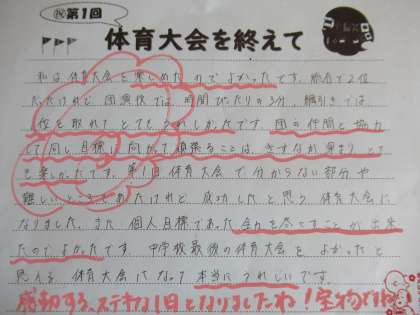 ㊗第1回
体育大会を終えて
私は体育大会を楽しめたのでよかったです。総合で2位
だったけれど、団演技では時間ぴったりの3分、綱引きでは
位を取れてとてもうれしかったです。団の仲間と協力
して同じ目標に向かって頑張ることは、きずなが深まりとて
も楽しかったです。第1回体育大会で分からない部分や
難しいところもあったけれど、成功したと思う体育大会に
なりました。また、個人目標であった全力を尽くすことが出来
たのでよかったです。中学校最後の体育大会をよかったと
思える体育大会になって本当にうれしいです。
感動する、ステキな1日となりましたね!宝物ですね